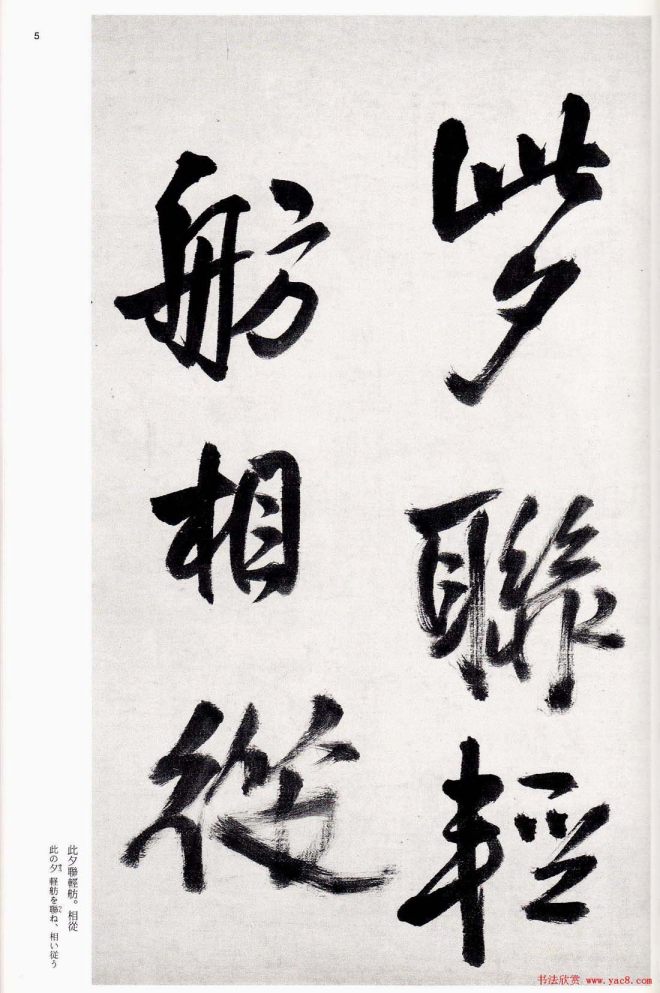 5
此夕聯輕
舫相從
此夕聯輕舫。相從
此の夕 軽舫を聯ね、相い従う
书法欣赏 www.yac8.com